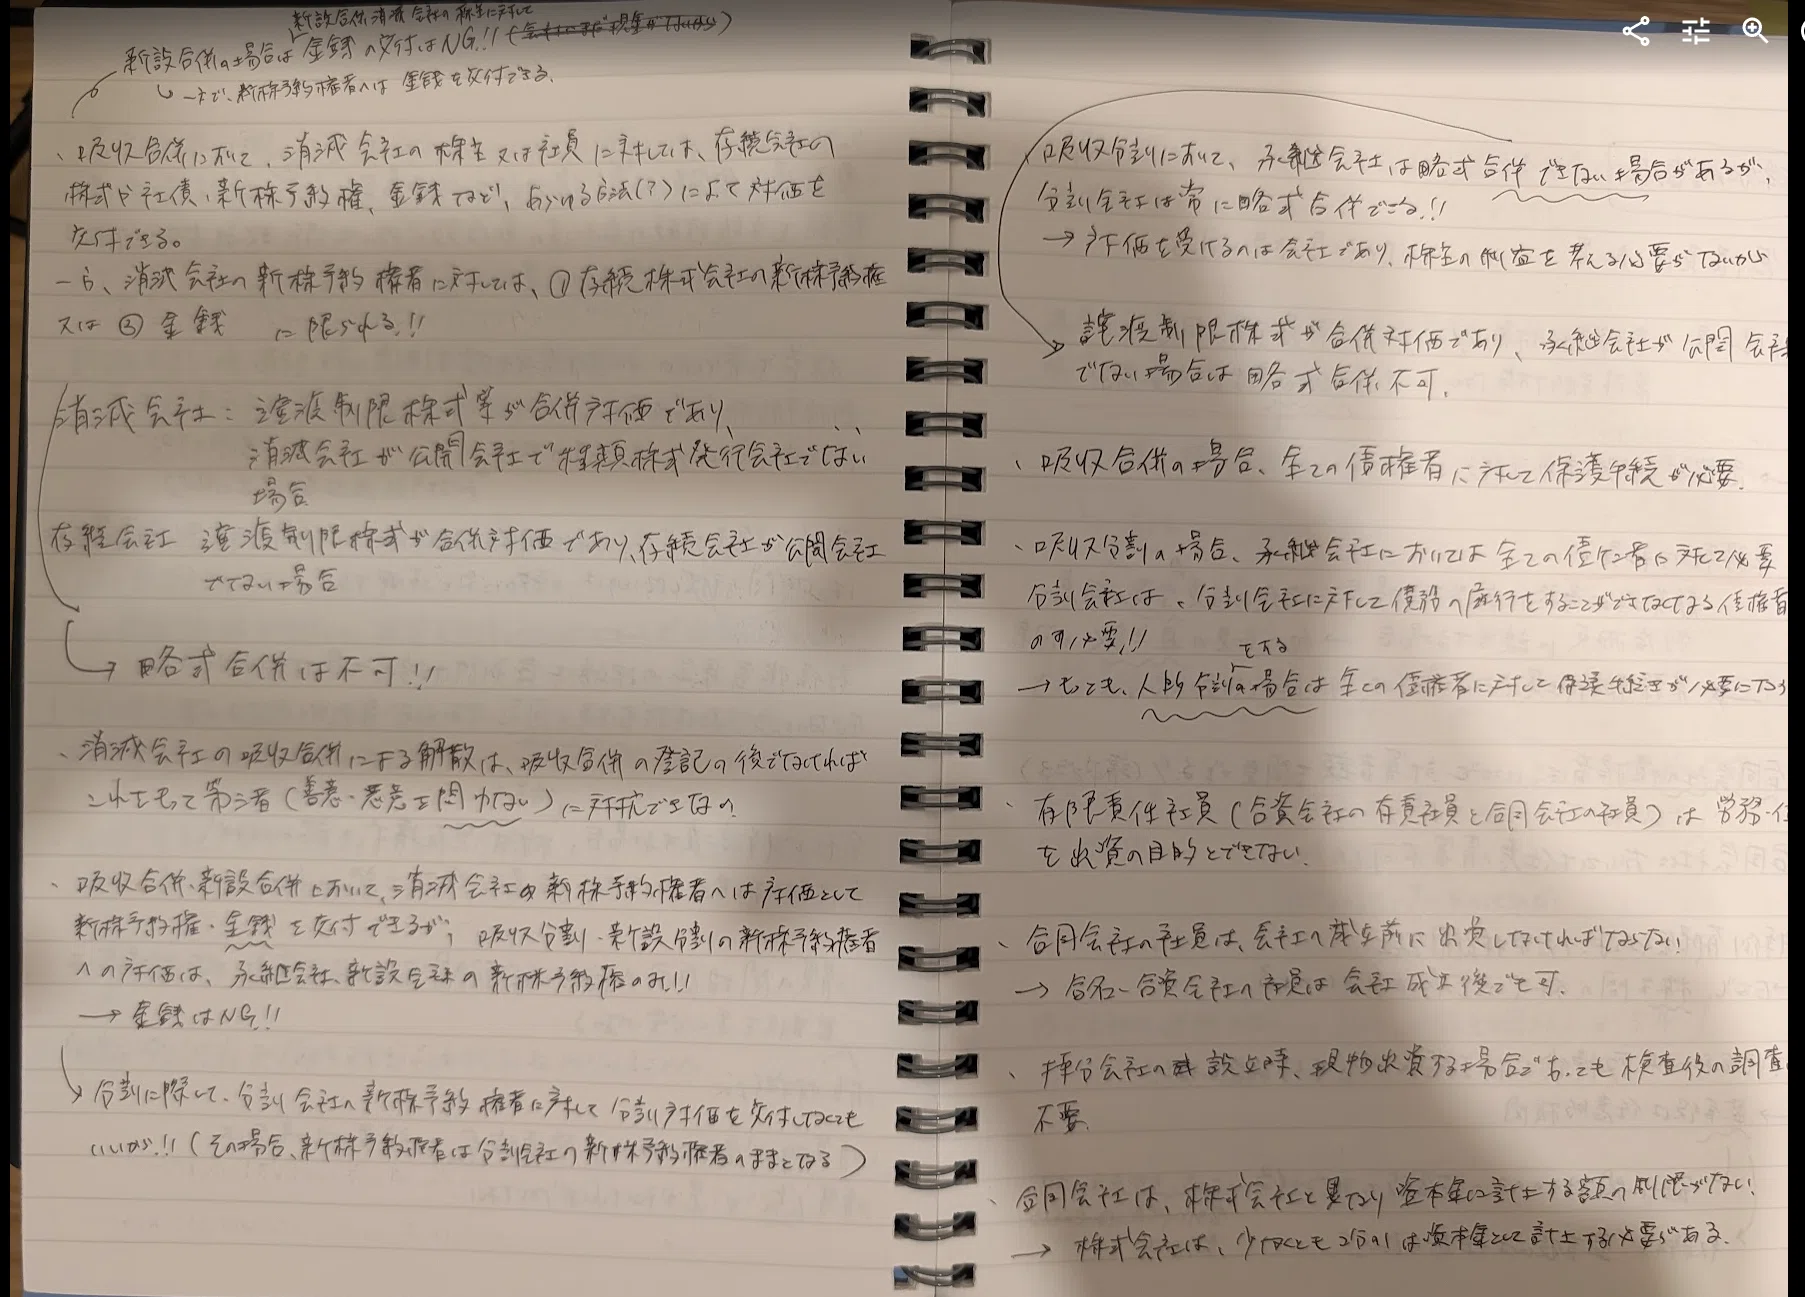 新設合併消滅会社の株主に対して
新設合併の場合は金銭の交付はNG!!（会社にまだ現金がないから）
↳一方で、新株予約権者へは金銭を交付できる。
、吸収合併において、消滅会社の株主又は社員に対しては、存続会社の
株式や社債、新株予約権、金銭など、あらゆる方法(?)によって対価を
交付できる。
一方、消滅会社の新株予約権者に対しては、①存続株式会社の新株予約権
又は②金銭 に限られる!!
消滅会社：譲渡制限株式等が合併対価であり、
消滅会社が公開会社で種類株式発行会社でない
場合
存続会社 譲渡制限株式が合併対価であり、存続会社が公開会社
でない場合
→略式合併は不可!!
、消滅会社の吸収合併による解散は、吸収合併の登記の後でなければ
これをもって第三者（善意・悪意を問わない）に対抗できない
、吸収合併・新設合併において、消滅会社の新株予約権者へは対価として
新株予約権・金銭を交付できるが、吸収分割・新設分割の新株予約権者
への対価は、承継会社、新設会社の新株予約権のみ!!
→金銭はNG!!
分割に際して、分割会社の新株予約権者に対して分割対価を交付しなくても
いいから!!（その場合、新株予約権者は分割会社の新株予約権者のままとなる）
、吸収分割において、承継会社は略式合併できない場合があるが、
分割会社は常に略式合併できる!!
→対価を受けるのは会社であり、株主の利益を考える必要がないから
譲渡制限株式が合併対価であり、承継会社が公開会社
でない場合は略式合併不可.
、吸収合併の場合、全ての債権者に対して保護手続が必要.
、吸収分割の場合、承継会社においては全ての債権者に対して必要
分割会社は、分割会社に対して債務の履行をすることができなくなる債権者
のみ必要!!
をする
→もっとも、人的分割の場合は全ての債権者に対して保護手続きが必要になる
、有限責任社員（合資会社の有責社員と合同会社の社員）は労務・信
を出資の目的とできない.
、合同会社の社員は、会社の成立前に出資しなければならない
→合名・合資会社の社員は会社成立後でも可.
、持分会社の設立時、現物出資する場合であっても検査役の調査
不要.
、合同会社は、株式会社と異なり資本金に計上する額の制限がない.
→株式会社は、少なくとも2分の1は資本金として計上する必要がある.